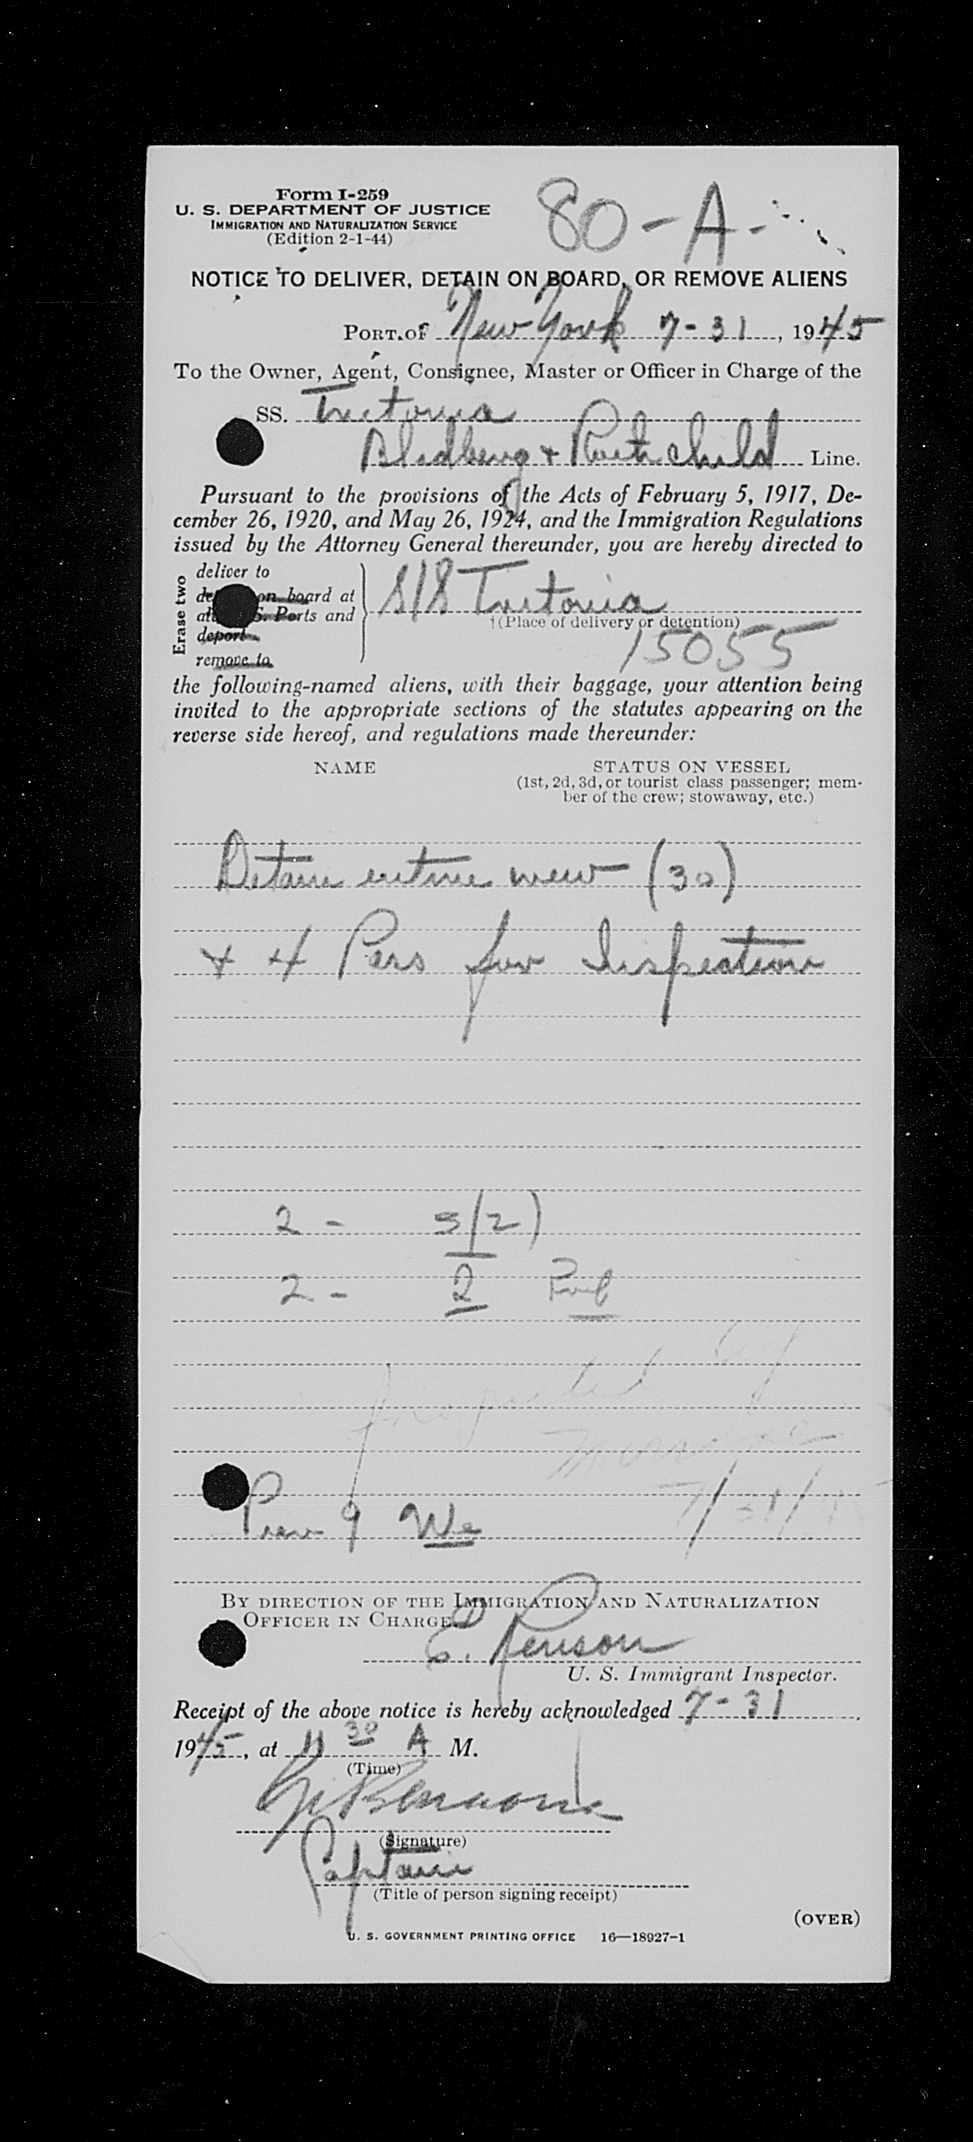 Form I-259
U. S. DEPARTMENT OF JUSTICE
IMMIGRATION AND NATURALIZATION SERVICE
(Edition 2-1-44)
80-A-
NOTICE TO DELIVER, DETAIN ON BOARD, OR REMOVE ALIENS
PORT OF New York 7-31, 1945
To the Owner, Agent, Consignee, Master or Officer in Charge of the
SS. Tretonia
Blidberg & Rothchild Line.
Pursuant to the provisions of the Acts of February 5, 1917, De-
cember 26, 1920, and May 26, 1924, and the Immigration Regulations
issued by the Attorney General thereunder, you are hereby directed to
Erase two
deliver to
on board at
S. Ports and
deport
remove to
S/S Tretonia
†(Place of delivery or detention)
15055
the following-named aliens, with their baggage, your attention being
invited to the appropriate sections of the statutes appearing on the
reverse side hereof, and regulations made thereunder:
NAME STATUS ON VESSEL
(1st, 2d, 3d, or tourist class passenger; mem-
ber of the crew; stowaway, etc.)
Detain entire crew (30)
& 4 Pers for Inspection
2 - 3/2)
2 - 2
Inspected by
7/31/45
9
BY DIRECTION OF THE IMMIGRATION AND NATURALIZATION
OFFICER IN CHARGE.
E. Renson
U. S. Immigrant Inspector.
Receipt of the above notice is hereby acknowledged 7-31,
1945, at 11 30 A M.
(Time)
(Signature)
Captain
(Title of person signing receipt)
(OVER)
U. S. GOVERNMENT PRINTING OFFICE 16—18927-1